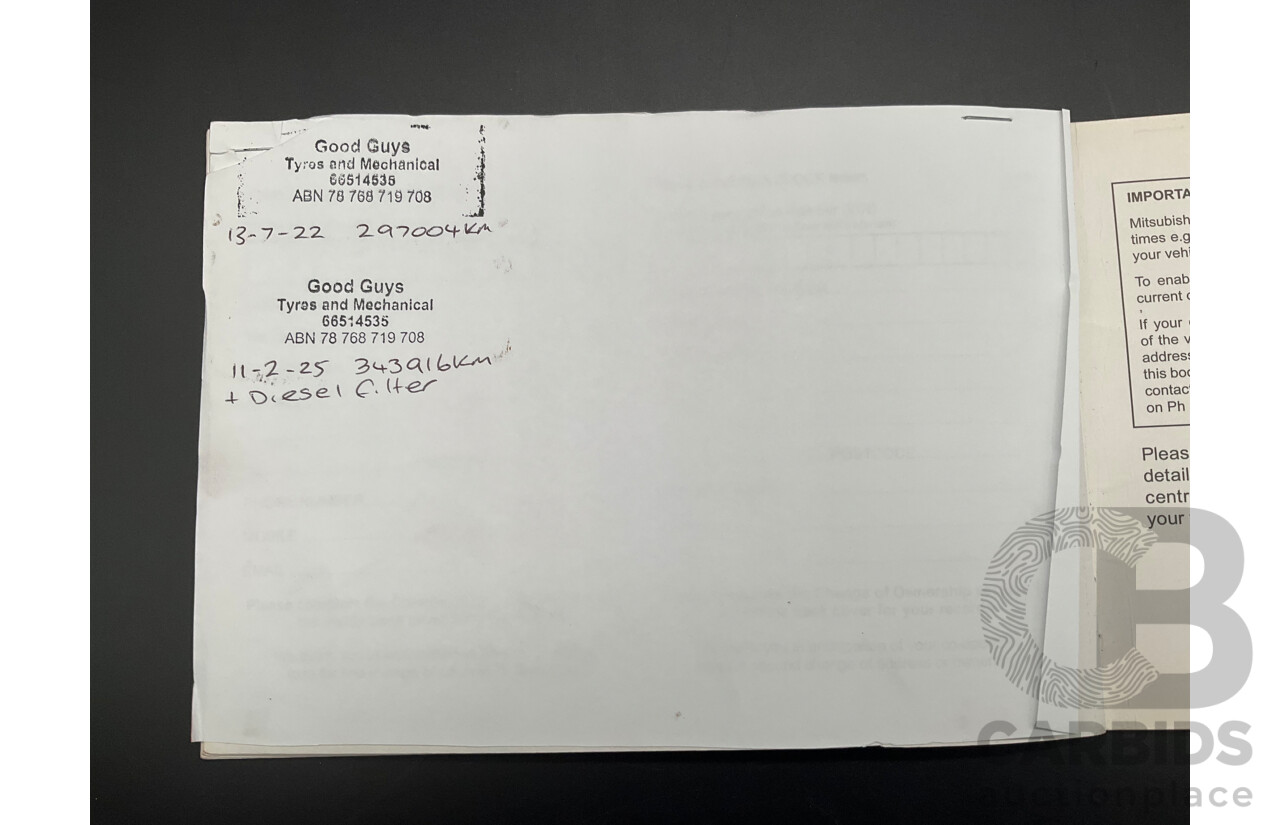 Good Guys
Tyres and Mechanical
66514535
ABN 78 768 719 708
13-7-22 297004km
Good Guys
Tyres and Mechanical
66514535
ABN 78 768 719 708
11-2-25 343916km
+ Diesel filter
IMPORTA
Mitsubish
times e.g
your vehi
To enab
current
If your
of the v
address
this boo
contac
on Ph
Pleas
detail
centr
your
CB
CARBIDS
auctionplace